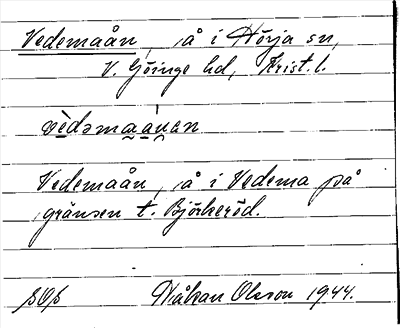 Vedemaån, å i Hörja sn,
V. Göinge hd, Krist. l.
vèdəmaanən
Vedemaån, å i Vedema på
gränsen t. Björkeröd.
Håkan Olsson 1944.